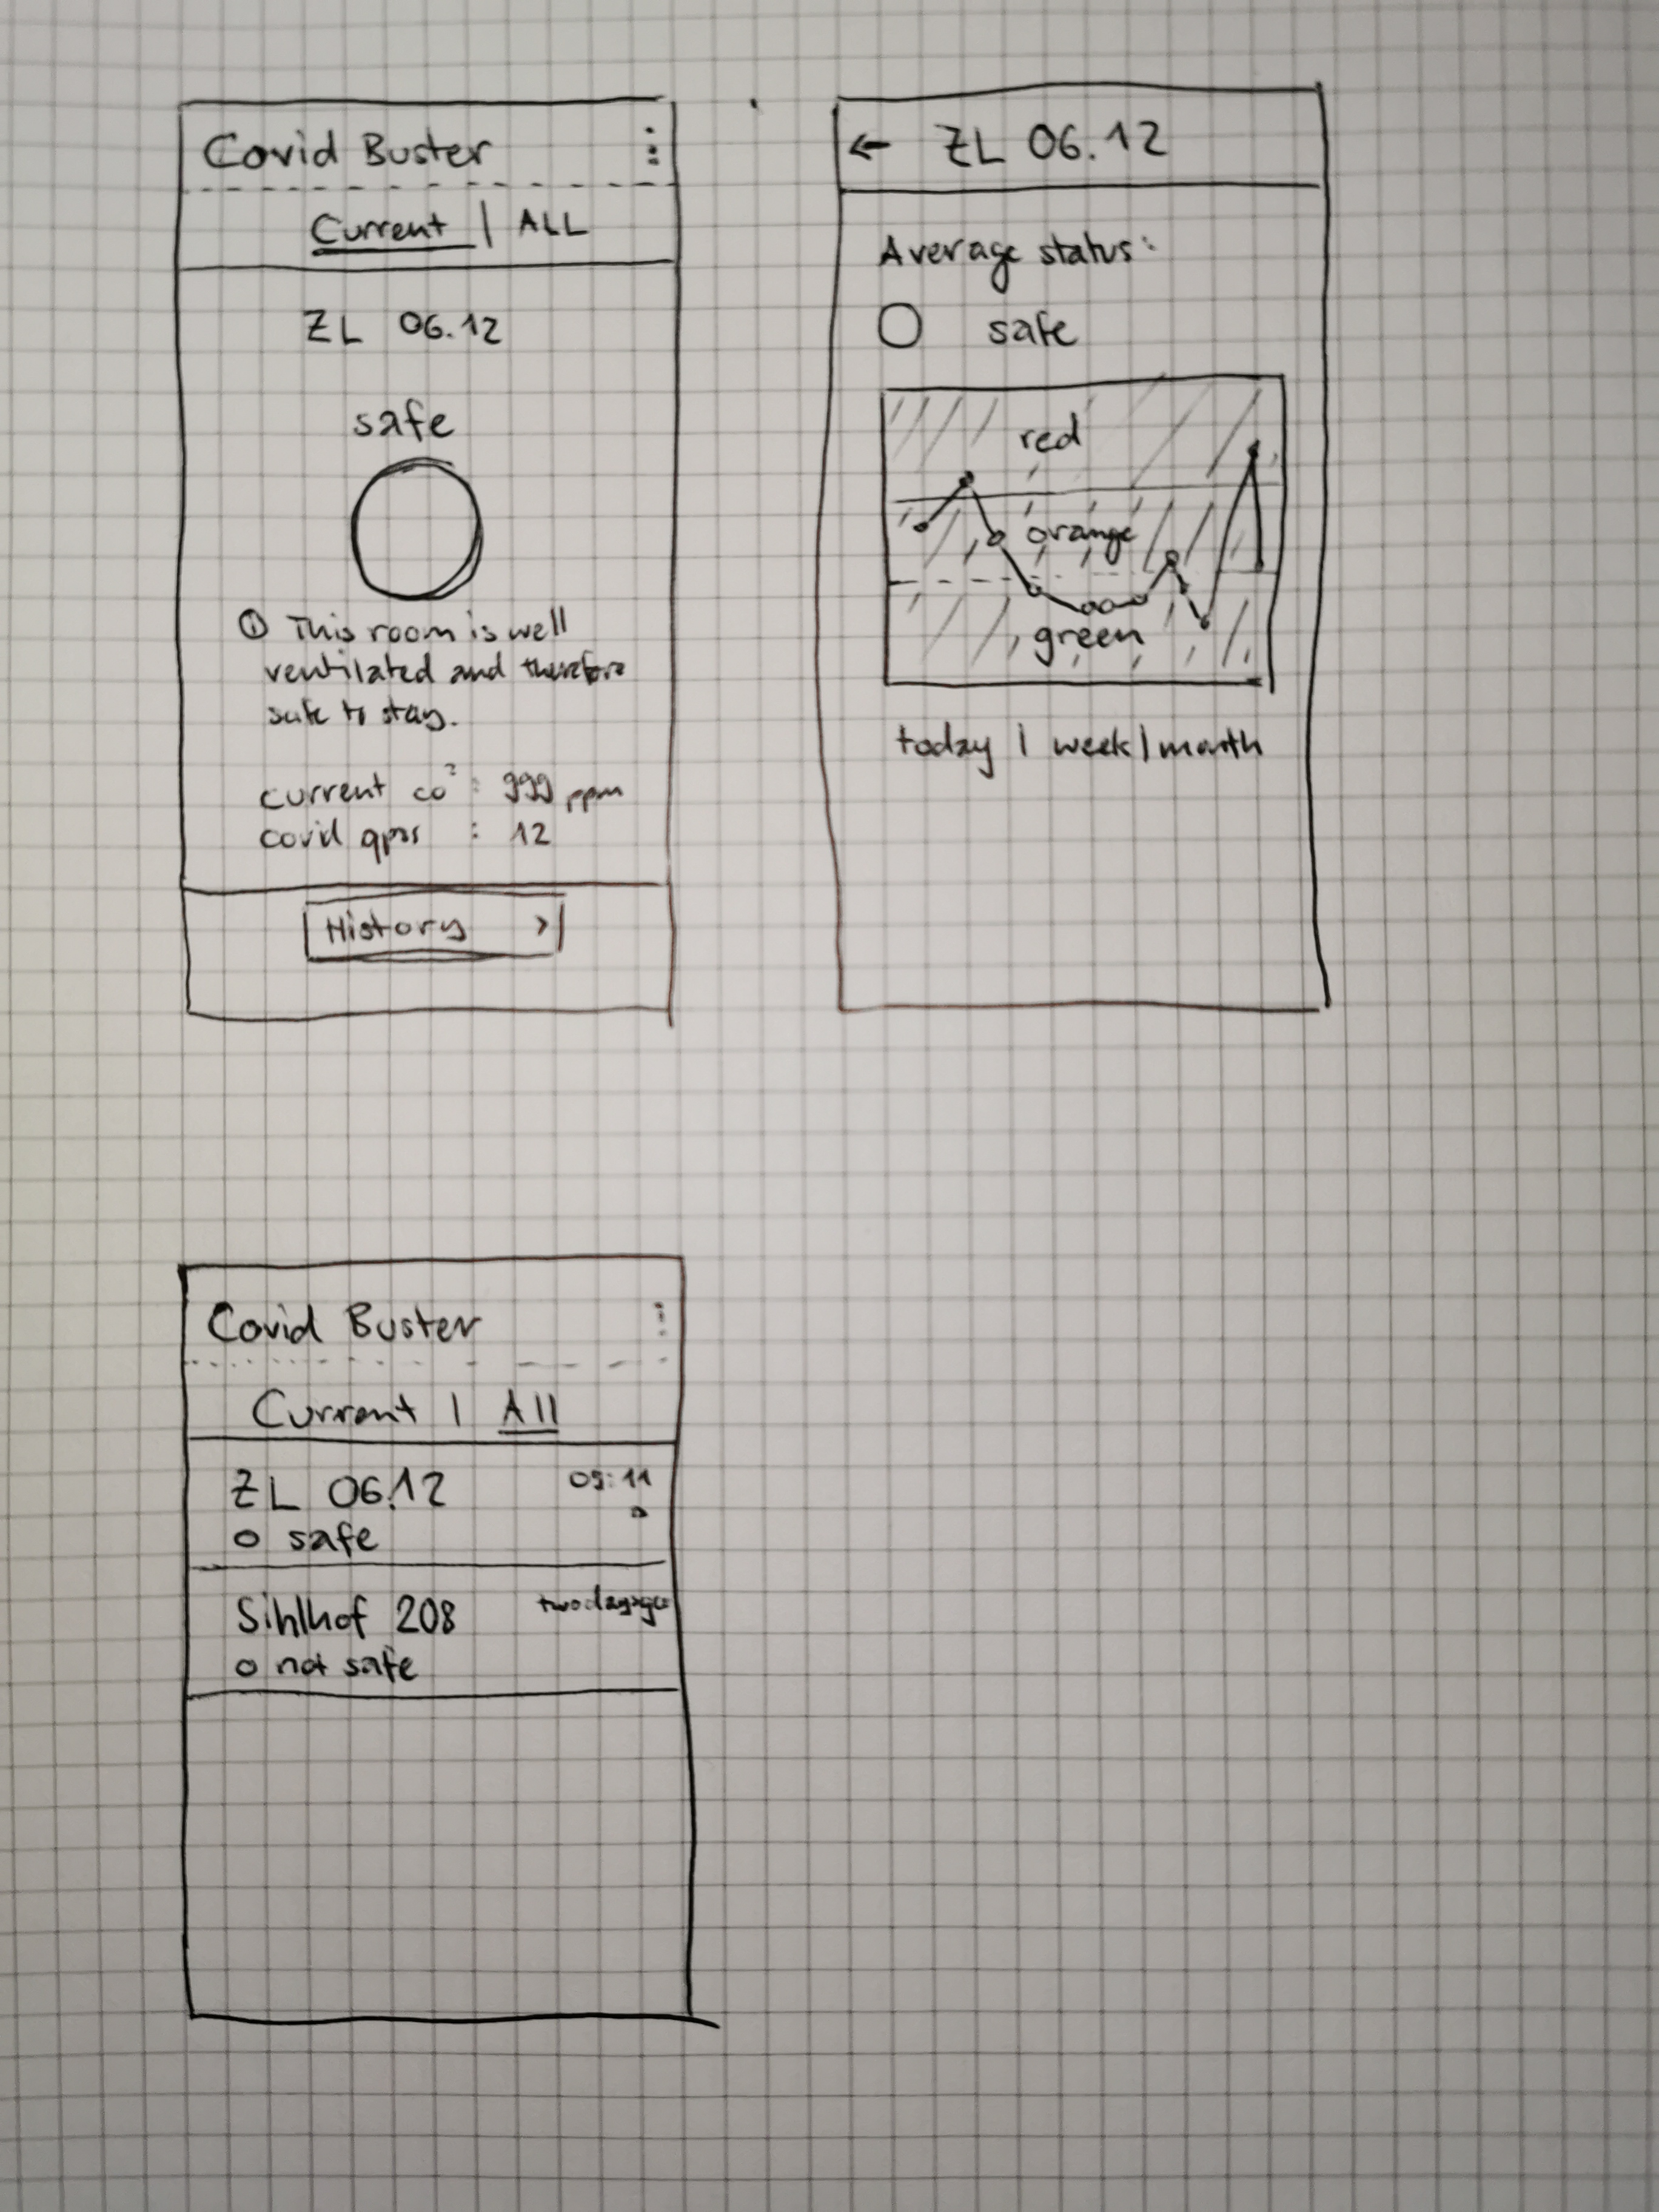 Covid Buster
Current | ALL
ZL 06.12
safe
This room is well
ventilated and therefore
safe to stay.
current co² : 999 ppm
covid : 12
History >
← ZL 06.12
Average status:
safe
red
orange
green
today | week | month
Covid Buster
Current | All
ZL 06.12 09:11
safe
Sihlhof 208 two days ago
not safe